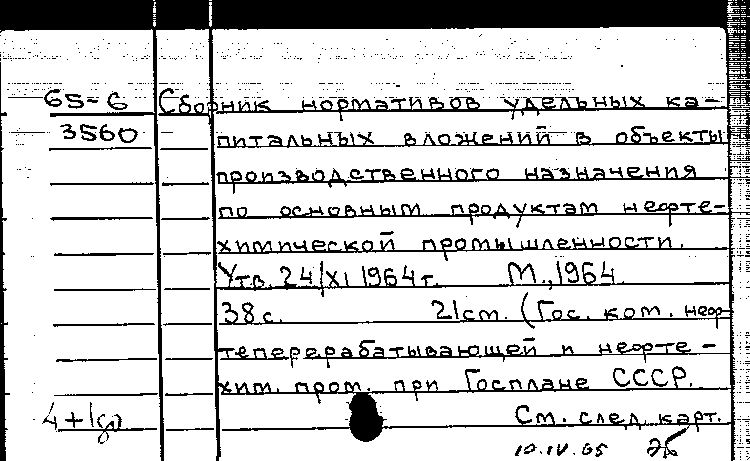 65-6 Сборник нормативов удельных ка-
3560 питальных вложений в объекты
производственного назначения
по основным продуктам нефте-
химической промышленности.
Утв. 24/XI 1964г. М., 1964
38 с. 21см. (Гос. ком. неф-
теперерабатывающей и нефте-
хим. пром. при Госплане СССР.
4+1 См. след. карт.
10.IV.65